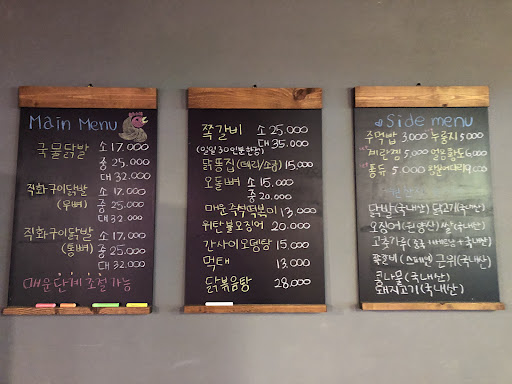 Main Menu
국물닭발 소 17.000
중 25.000
대 32.000
직화구이닭발 소 17.000
(무뼈) 중 25.000
대 32.000
직화구이닭발 소 17.000
(통뼈) 중 25.000
대 32.000
매운단계 조절가능
쪽갈비 소 25.000
(일일 30인분한정) 대 35.000
닭똥집(데리/소금) 15,000
오돌뼈 소 15.000
중 20.000
매운즉석떡볶이 13.000
위탄불오징어 20.000
간사이오뎅탕 15.000
먹태 13.000
닭볶음탕 28.000
Side menu
주먹밥 3000 누룽지 5000
계란찜 5.000 6,000
5.000
닭발(국내산) 닭고기(국내산)
오징어(원양산) 쌀(국내산)
고춧가루(중국 국내산)
(스페인) 근위(국내산)
콩나물(국내산)
돼지고기(국내산)